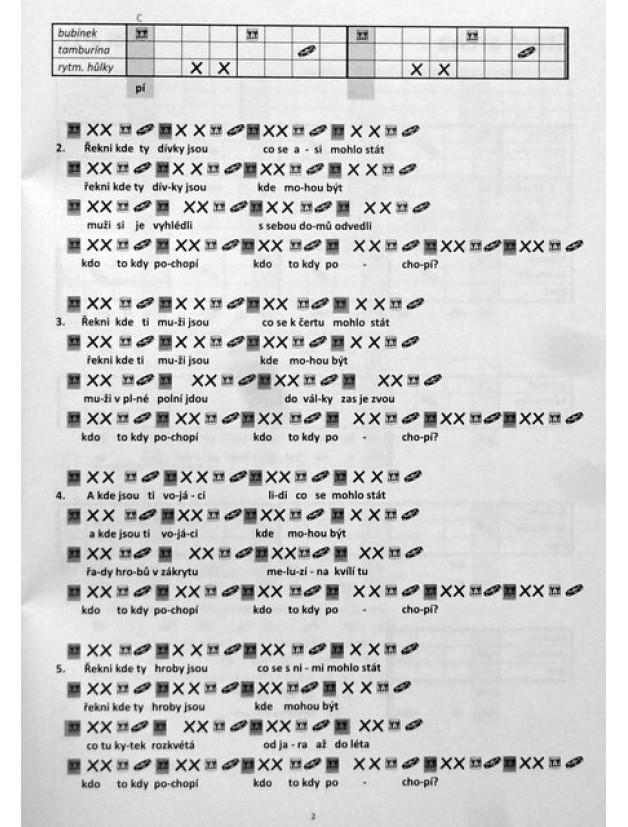 C
bubínek
tamburína
rytm. hůlky X X X X
pí
XX X X XX X X
2. Řekni kde ty dívky jsou co se a - si mohlo stát
XX X X XX X X
řekni kde ty dív-ky jsou kde mo-hou být
XX XX XX XX
muži si je vyhlédli s sebou do-mů odvedli
XX XX XX XX XX XX
kdo to kdy po-chopí kdo to kdy po - cho-pí?
XX X X XX X X
3. Řekni kde ti mu-ži jsou co se k čertu mohlo stát
XX X X XX X X
řekni kde ti mu-ži jsou kde mo-hou být
XX XX XX XX
mu-ži v pl-né polní jdou do vál-ky zas je zvou
XX XX XX XX XX XX
kdo to kdy po-chopí kdo to kdy po - cho-pí?
XX XX XX X X
4. A kde jsou ti vo-já - ci li-di co se mohlo stát
XX XX XX X X
a kde jsou ti vo-já-ci kde mo-hou být
XX XX XX XX
řa-dy hro-bů v zákrytu me-lu-zí - na kvílí tu
XX XX XX XX XX XX
kdo to kdy po-chopí kdo to kdy po - cho-pí?
XX X X XX X X
5. Řekni kde ty hroby jsou co se s ni - mi mohlo stát
XX X X XX X X
řekni kde ty hroby jsou kde mohou být
XX XX XX XX
co tu ky-tek rozkvétá od ja - ra až do léta
XX XX XX XX XX XX
kdo to kdy po-chopí kdo to kdy po - cho-pí?
2